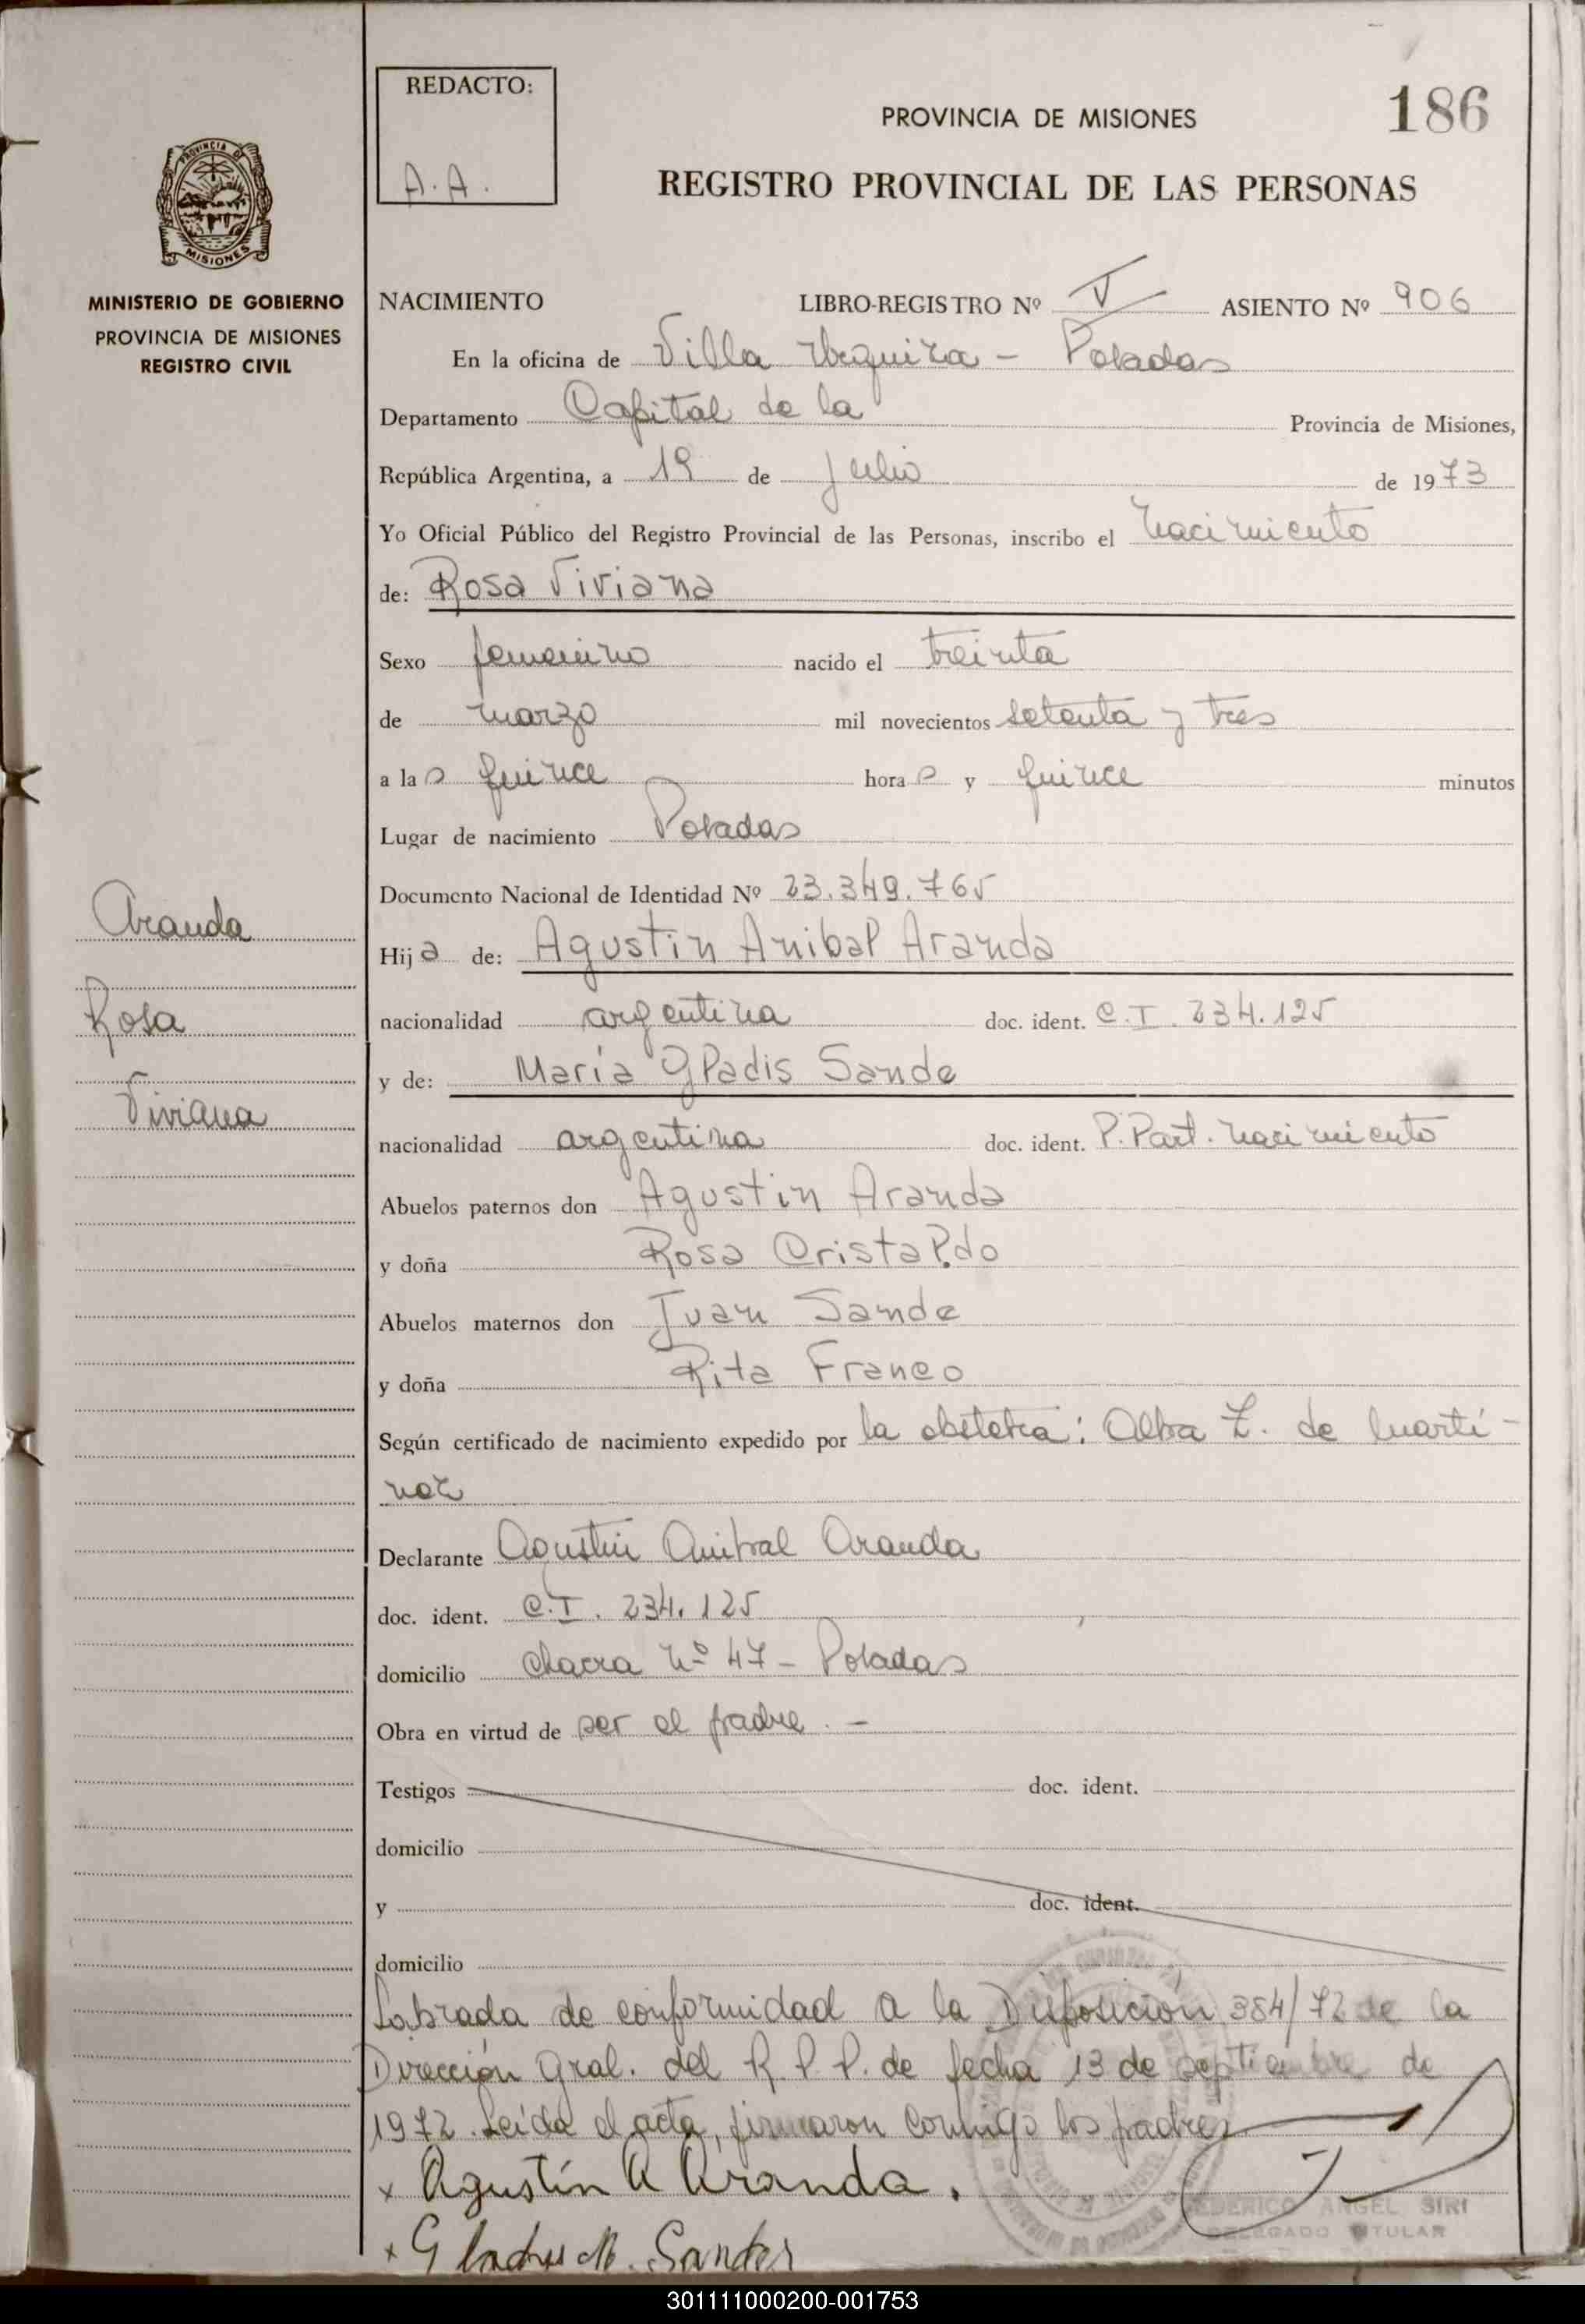 REDACTO:
A.A.
PROVINCIA DE MISIONES
186
REGISTRO PROVINCIAL DE LAS PERSONAS
PROVINCIA DE
MISIONES
MINISTERIO DE GOBIERNO
PROVINCIA DE MISIONES
REGISTRO CIVIL
NACIMIENTO LIBRO-REGISTRO Nº V ASIENTO Nº 906
En la oficina de Villa Urquiza - Posadas
Departamento Capital de la Provincia de Misiones,
República Argentina, a 19 de Julio de 1973
Yo Oficial Público del Registro Provincial de las Personas, inscribo el nacimiento
de: Rosa Viviana
Sexo femenino nacido el treinta
de marzo mil novecientos setenta y tres
a las quince horas y quince minutos
Lugar de nacimiento Posadas
Documento Nacional de Identidad Nº 23.349.765
Hija de: Agustin Anibal Aranda
nacionalidad argentina doc. ident. C.I. 234.125
y de: María Gladis Sande
nacionalidad argentina doc. ident. P. Part. nacimiento
Abuelos paternos don Agustin Aranda
y doña Rosa Cristaldo
Abuelos maternos don Juan Sande
y doña Rita Franco
Según certificado de nacimiento expedido por la obstetra: Alba Z. de Martí-
nez
Declarante Agustin Anibal Aranda
doc. ident. C.I. 234.125
domicilio Chacra Nº 47 - Posadas
Obra en virtud de ser el padre. -
Testigos doc. ident.
domicilio
y doc. ident.
domicilio
Labrada de conformidad a la Disposición 384/72 de la
Dirección Gral. del R.P.P. de fecha 13 de septiembre de
1972. Leída el acta, firmaron conmigo los padres
x Agustín A Aranda.
x Gladys M. Sander
FEDERICO ANGEL SIRI
DELEGADO TITULAR
Aranda
Rosa
Viviana
301111000200-001753